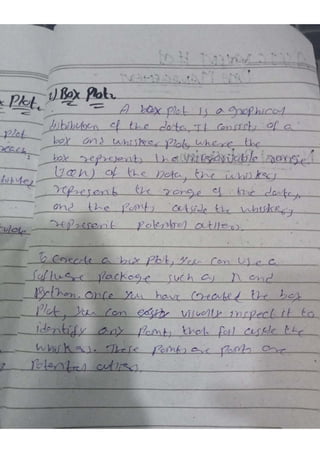 x Plot.
2) Box Plot:
A box plot is a graphical
distribution of the data, It consists of a
plot
box and whisker plot, where the
box represents the interquartile range
(IQR) of the Data, the whiskers
represent the range of the data,
and the points outside the whiskers
represent potential outliers.
To Create a box plot, you can use a
software package such as R and
Python. Once you have created the box
Plot, you can easily visually inspect it to
identify any points that fall outside the
whiskers. These points are points are
Potential outliers.